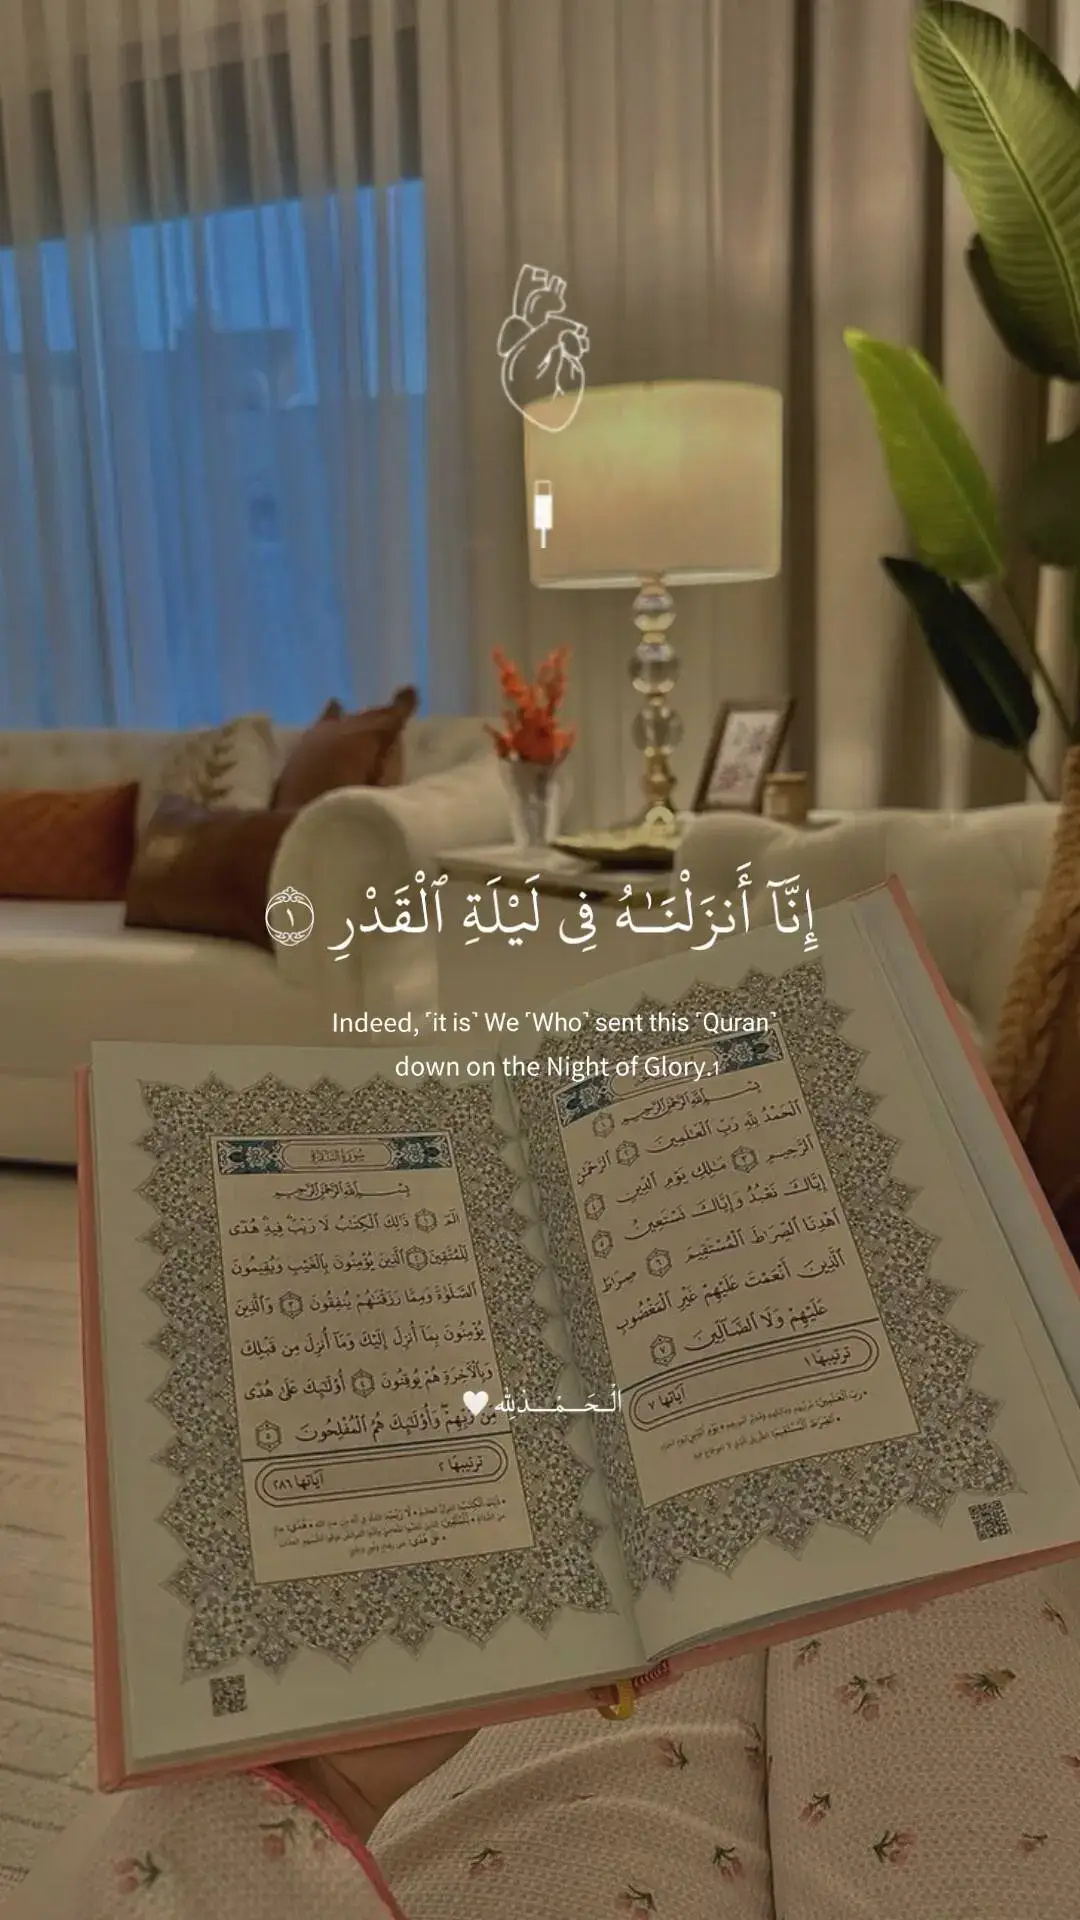 إِنَّآ أَنزَلْنَـٰهُ فِى لَيْلَةِ ٱلْقَدْرِ ١
Indeed, ˹it is˺ We ˹Who˺ sent this ˹Quran˺
down on the Night of Glory.1
بِسْمِ ٱللَّهِ ٱلرَّحْمَـٰنِ ٱلرَّحِيمِ ١
ٱلْحَمْدُ لِلَّهِ رَبِّ ٱلْعَـٰلَمِينَ ٢ ٱلرَّحْمَـٰنِ
ٱلرَّحِيمِ ٣ مَـٰلِكِ يَوْمِ ٱلدِّينِ ٤
إِيَّاكَ نَعْبُدُ وَإِيَّاكَ نَسْتَعِينُ ٥
ٱهْدِنَا ٱلصِّرَٰطَ ٱلْمُسْتَقِيمَ ٦ صِرَٰطَ
ٱلَّذِينَ أَنْعَمْتَ عَلَيْهِمْ غَيْرِ ٱلْمَغْضُوبِ
عَلَيْهِمْ وَلَا ٱلضَّآلِّينَ ٧
ترتيبها ١
آياتها ٧
سُورَةُ البَقَرَةِ
بِسْمِ ٱللَّهِ ٱلرَّحْمَـٰنِ ٱلرَّحِيمِ
الٓمٓ ١ ذَٰلِكَ ٱلْكِتَـٰبُ لَا رَيْبَ فِيهِ هُدًى
لِّلْمُتَّقِينَ ٢ ٱلَّذِينَ يُؤْمِنُونَ بِٱلْغَيْبِ وَيُقِيمُونَ
ٱلصَّلَوٰةَ وَمِمَّا رَزَقْنَـٰهُمْ يُنفِقُونَ ٣ وَٱلَّذِينَ
يُؤْمِنُونَ بِمَآ أُنزِلَ إِلَيْكَ وَمَآ أُنزِلَ مِن قَبْلِكَ
وَبِٱلْـَٔاخِرَةِ هُمْ يُوقِنُونَ ٤ أُو۟لَـٰٓئِكَ عَلَىٰ هُدًى
مِّن رَّبِّهِمْ وَأُو۟لَـٰٓئِكَ هُمُ ٱلْمُفْلِحُونَ ٥
ترتيبها ٢
آياتها ٢٨٦
الْـحَـمْـدُلِلّٰه🤍